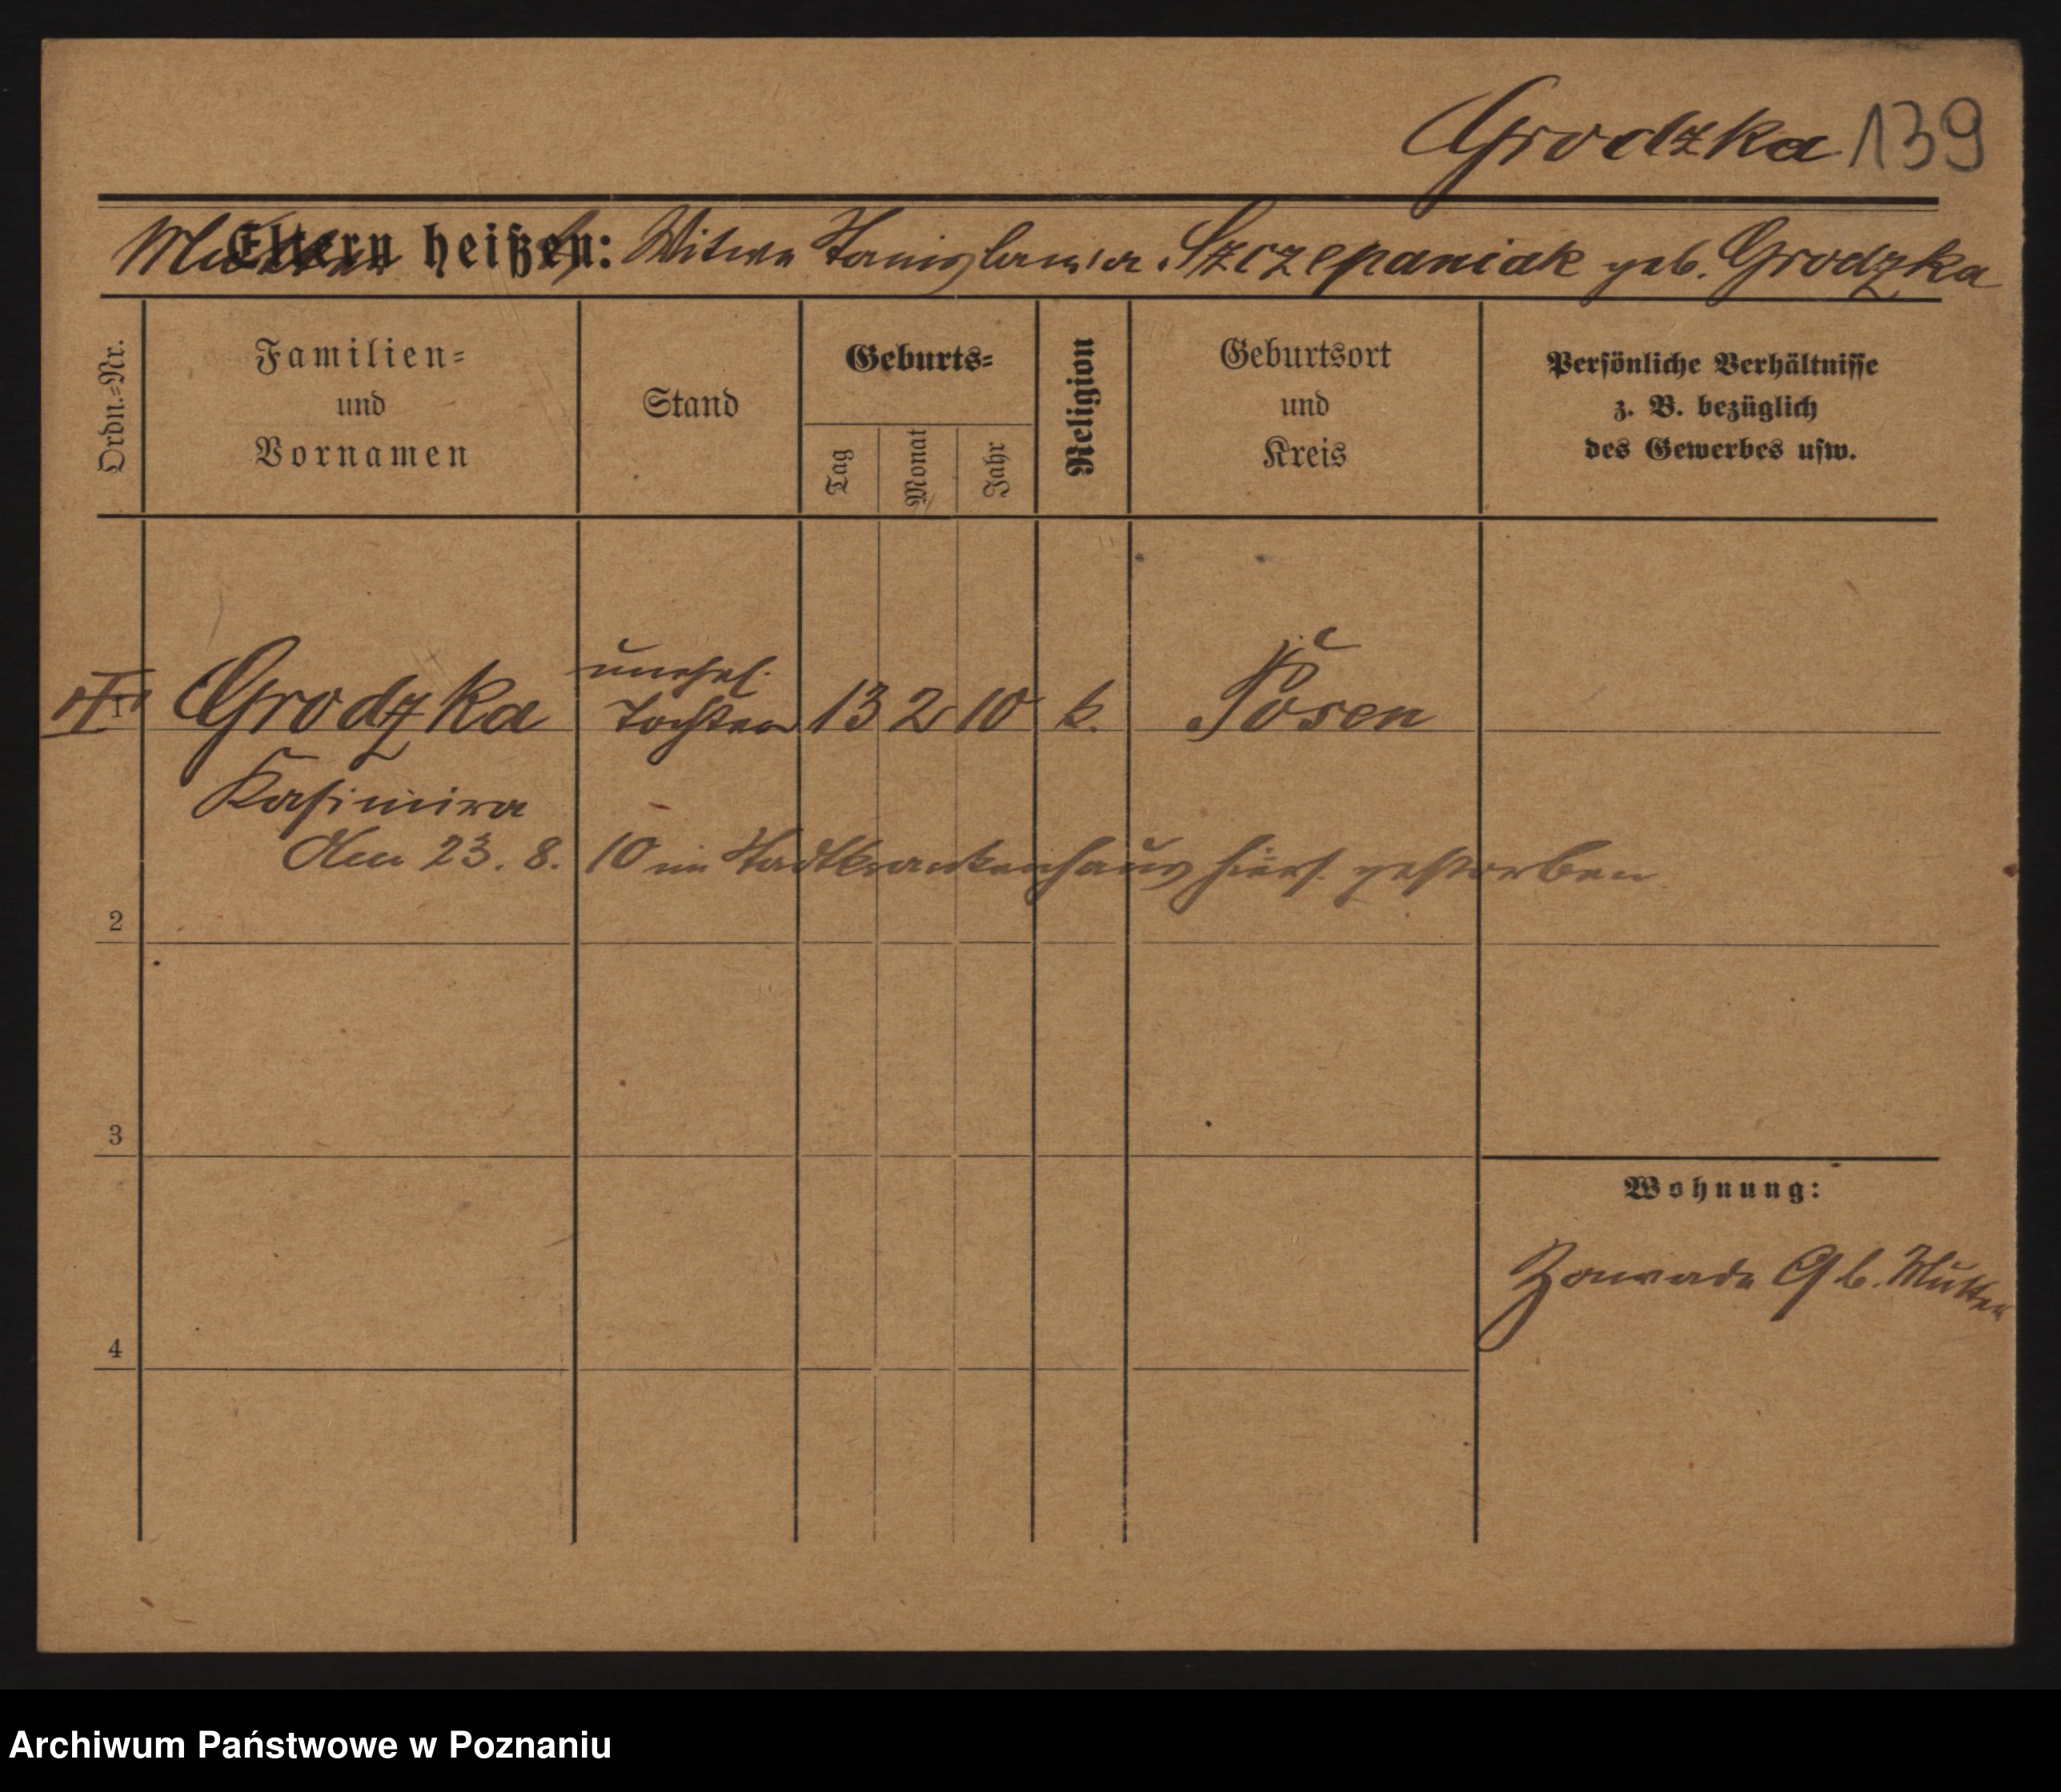 Grodzka 139
Mutter heißt: Witwe Stanislawa Szczepaniak geb. Grodzka
Ordn.=Nr.
Familien=
und
Vornamen
Stand
Geburts=
Tag
Monat
Jahr
Religion
Geburtsort
und
Kreis
Persönliche Verhältnisse
z. B. bezüglich
des Gewerbes usw.
1 Grodzka unehel. Tochter 13 2 10 k. Posen
Kasimira
Den 23. 8. 10 im Stadtkrankenhaus hiers. gestorben
2
3
Wohnung:
9 b. Mutter
4
Archiwum Państwowe w Poznaniu